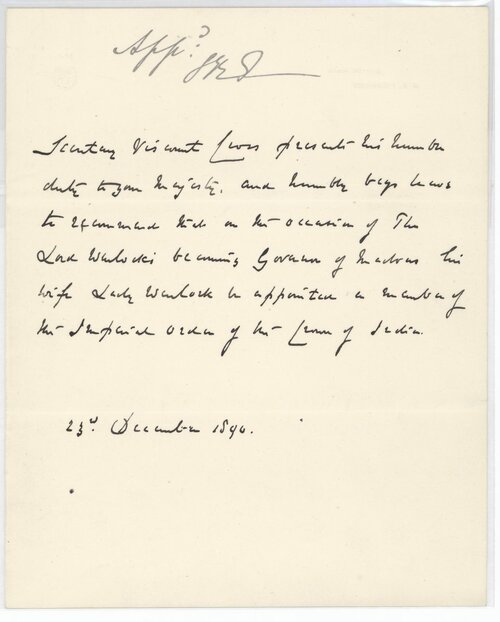 Appd:
VRI
Secretary Viscount Cross presents his humble
duty to your Majesty, and humbly begs leave
to recommend that on the occasion of The
Lord Wenlock's becoming Governor of Madras his
wife Lady Wenlock be appointed a member of
the Imperial Order of the Crown of India.
23rd. December 1890.